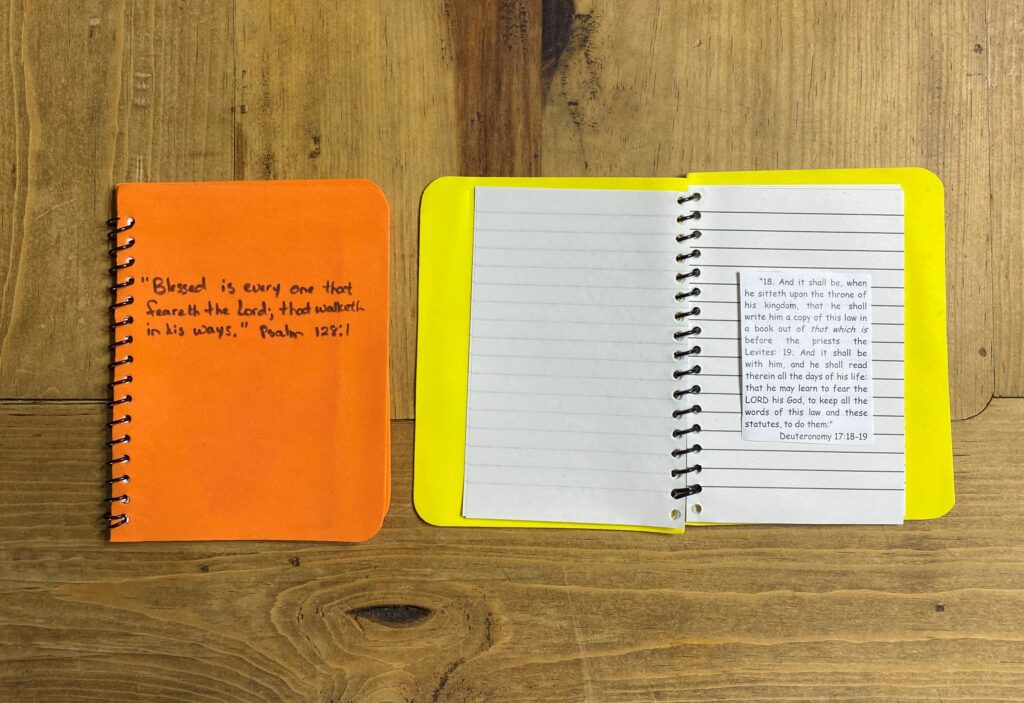 "Blessed is every one that
feareth the Lord; that walketh
in his ways." Psalm 128:1
"18. And it shall be, when
he sitteth upon the throne of
his kingdom, that he shall
write him a copy of this law in
a book out of that which is
before the priests the
Levites: 19. And it shall be
with him, and he shall read
therein all the days of his life:
that he may learn to fear the
LORD his God, to keep all the
words of this law and these
statutes, to do them:"
Deuteronomy 17:18-19